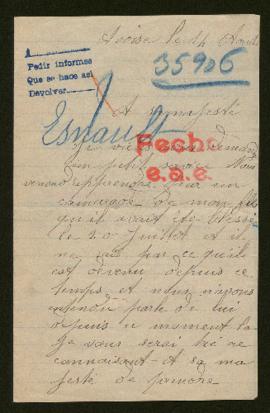 le 14 Août
A
Pedir informes
Que se hace así
Devolver
35906
Esnault
A sa majesté
Je viens vous demander
un petit service Nous
venons d'apprendre par un
camarade de mon fils
qu'il avait été blessé
le 20 Juillet et il
ne sait pas ce qu'il
est devenu depuis ce
temps et nous n'avons
entendu parlé de lui
depuis ce moment la
Je vous serai très re
connaisant a sa ma
jesté de prendre
Fecha
e.a.e.